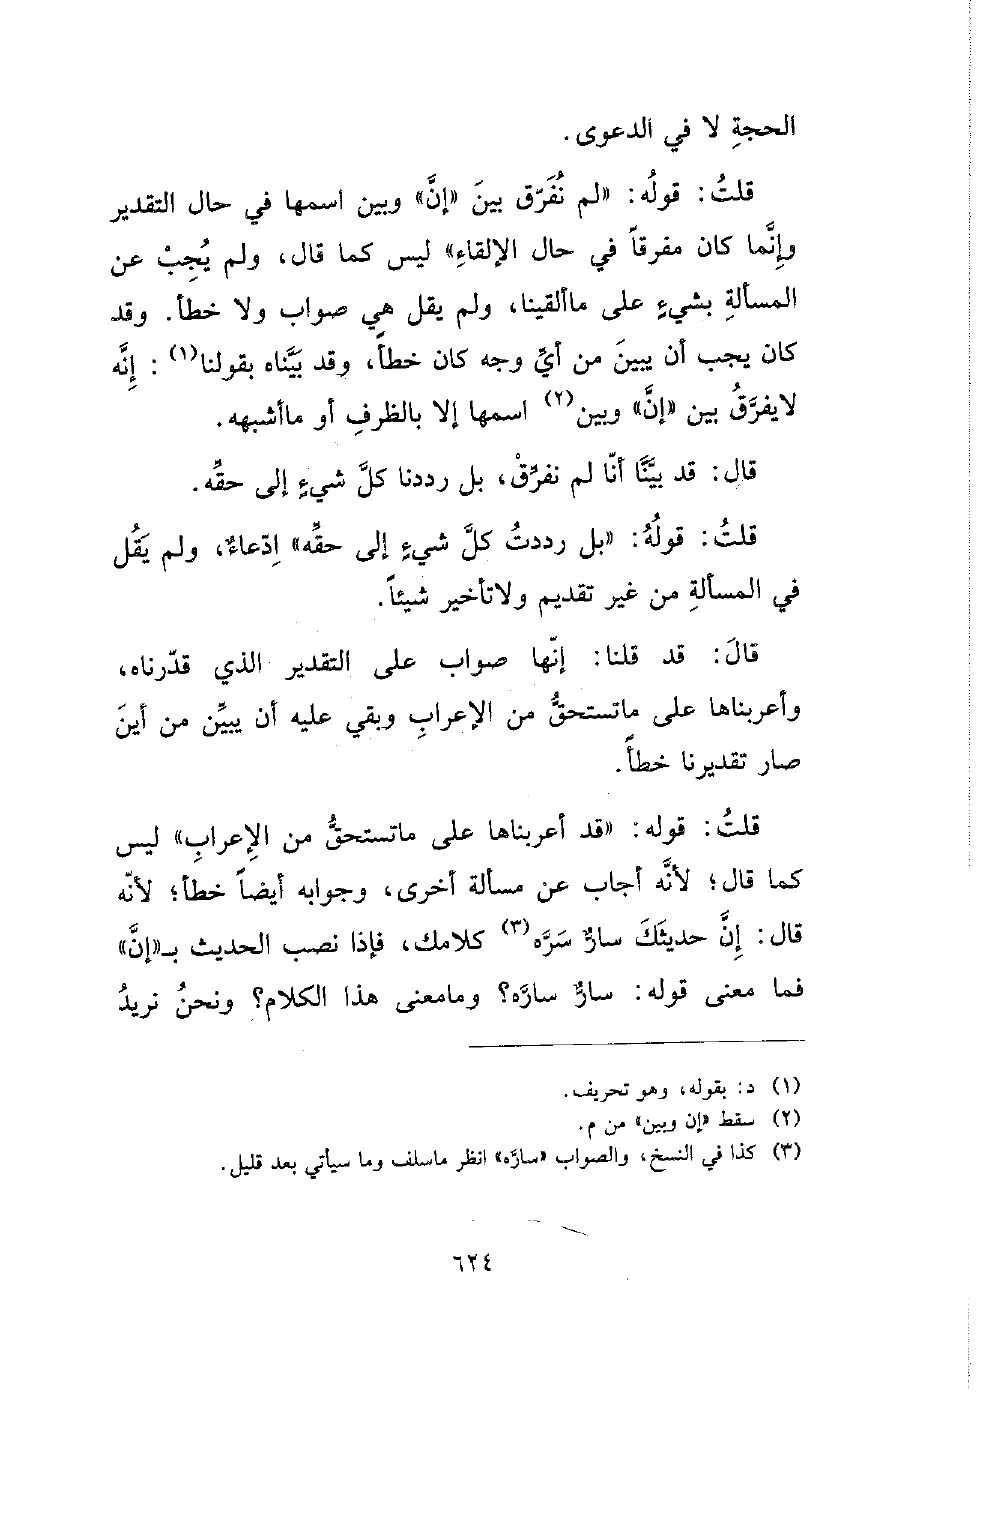 الحجةِ لا في الدعوى.
قلتُ: قولُه: «لم نُفَرّق بينَ «إنَّ» وبين اسمها في حال التقدير
وإِنَّما كان مفرقاً في حال الإلقاءِ» ليس كما قال، ولم يُجِبْ عن
المسألةِ بشيءٍ على ماألقينا، ولم يقل هي صواب ولا خطأ. وقد
كان يجب أن يبينَ من أيِّ وجه كان خطأً، وقد بَيَّناه بقولنا(١): إِنَّه
لايفرَّقُ بين «إنَّ» وبين(٢) اسمها إلا بالظرفِ أو ماأشبهه.
قال: قد بيَّنَّا أنّا لم نفرِّقْ، بل رددنا كلَّ شيءٍ إلى حقِّه.
قلتُ: قولُهُ: «بل رددتُ كلَّ شيءٍ إلى حقِّه» اِدّعاءٌ، ولم يَقُل
في المسألةِ من غير تقديم ولاتأخير شيئاً.
قالَ: قد قلنا: إنّها صواب على التقدير الذي قدّرناه،
وأعربناها على ماتستحقُّ من الإعرابِ وبقي عليه أن يبيِّن من أينَ
صار تقديرنا خطأً.
قلتُ: قوله: «قد أعربناها على ماتستحقُّ من الإِعرابِ» ليس
كما قال؛ لأنَّه أجاب عن مسألة أخرى، وجوابه أيضاً خطأ؛ لأنّه
قال: إِنَّ حديثَكَ سارٌّ سَرَّه(٣) كلامك، فإذا نصب الحديث بـ«إنَّ»
فما معنى قوله: سارٌّ سارَّه؟ ومامعنى هذا الكلام؟ ونحنُ نريدُ
(١) د: بقوله، وهو تحريف.
(٢) سقط «إن وبين» من م.
(٣) كذا في النسخ، والصواب «سارَّه» انظر ماسلف وما سيأتي بعد قليل.
٦٢٤